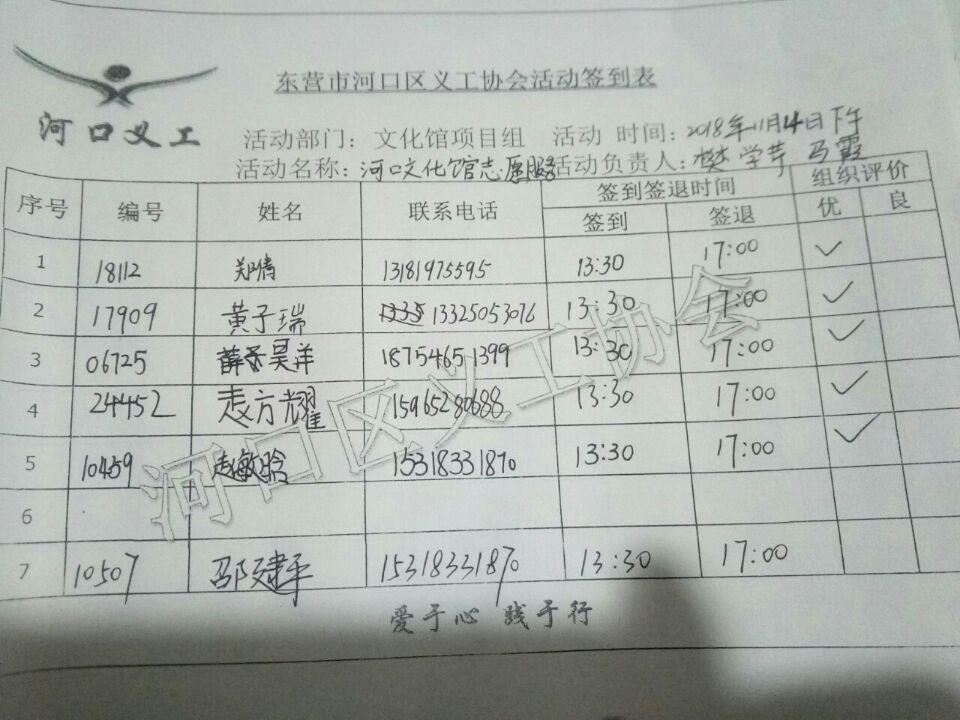 东营市河口区义工协会活动签到表
河口义工
活动部门：文化馆项目组 活动 时间：2018年11月4日下午
活动名称：河口文化馆志愿服务 活动负责人：樊学芹 马霞
序号 编号 姓名 联系电话 签到签退时间 组织评价
签到 签退 优 良
1 18112 郑倩 13181975595 13:30 17:00 ✓
2 17909 黄子瑞 13325053076 13:30 17:00 ✓
3 06725 薛昊洋 18754651399 13:30 17:00 ✓
4 24452 袁方耀 15965280688 13:30 17:00 ✓
5 10459 赵敏晗 15318331870 13:30 17:00 ✓
6
7 10507 邵建平 15318331870 13:30 17:00
河口区义工协会
爱于心 践于行